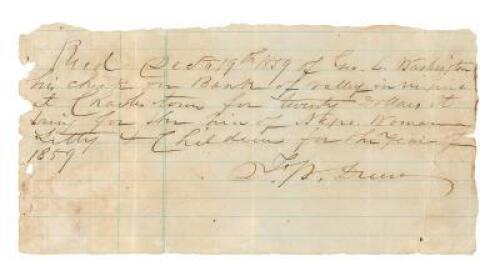 Recd Decr 19th 1859 of Geo. L. Washington
his check on Bank of valley in virginia
at Charlestown for twenty dollars it
being for the hire of Negro Woman
Letty & Children for the year of
1859